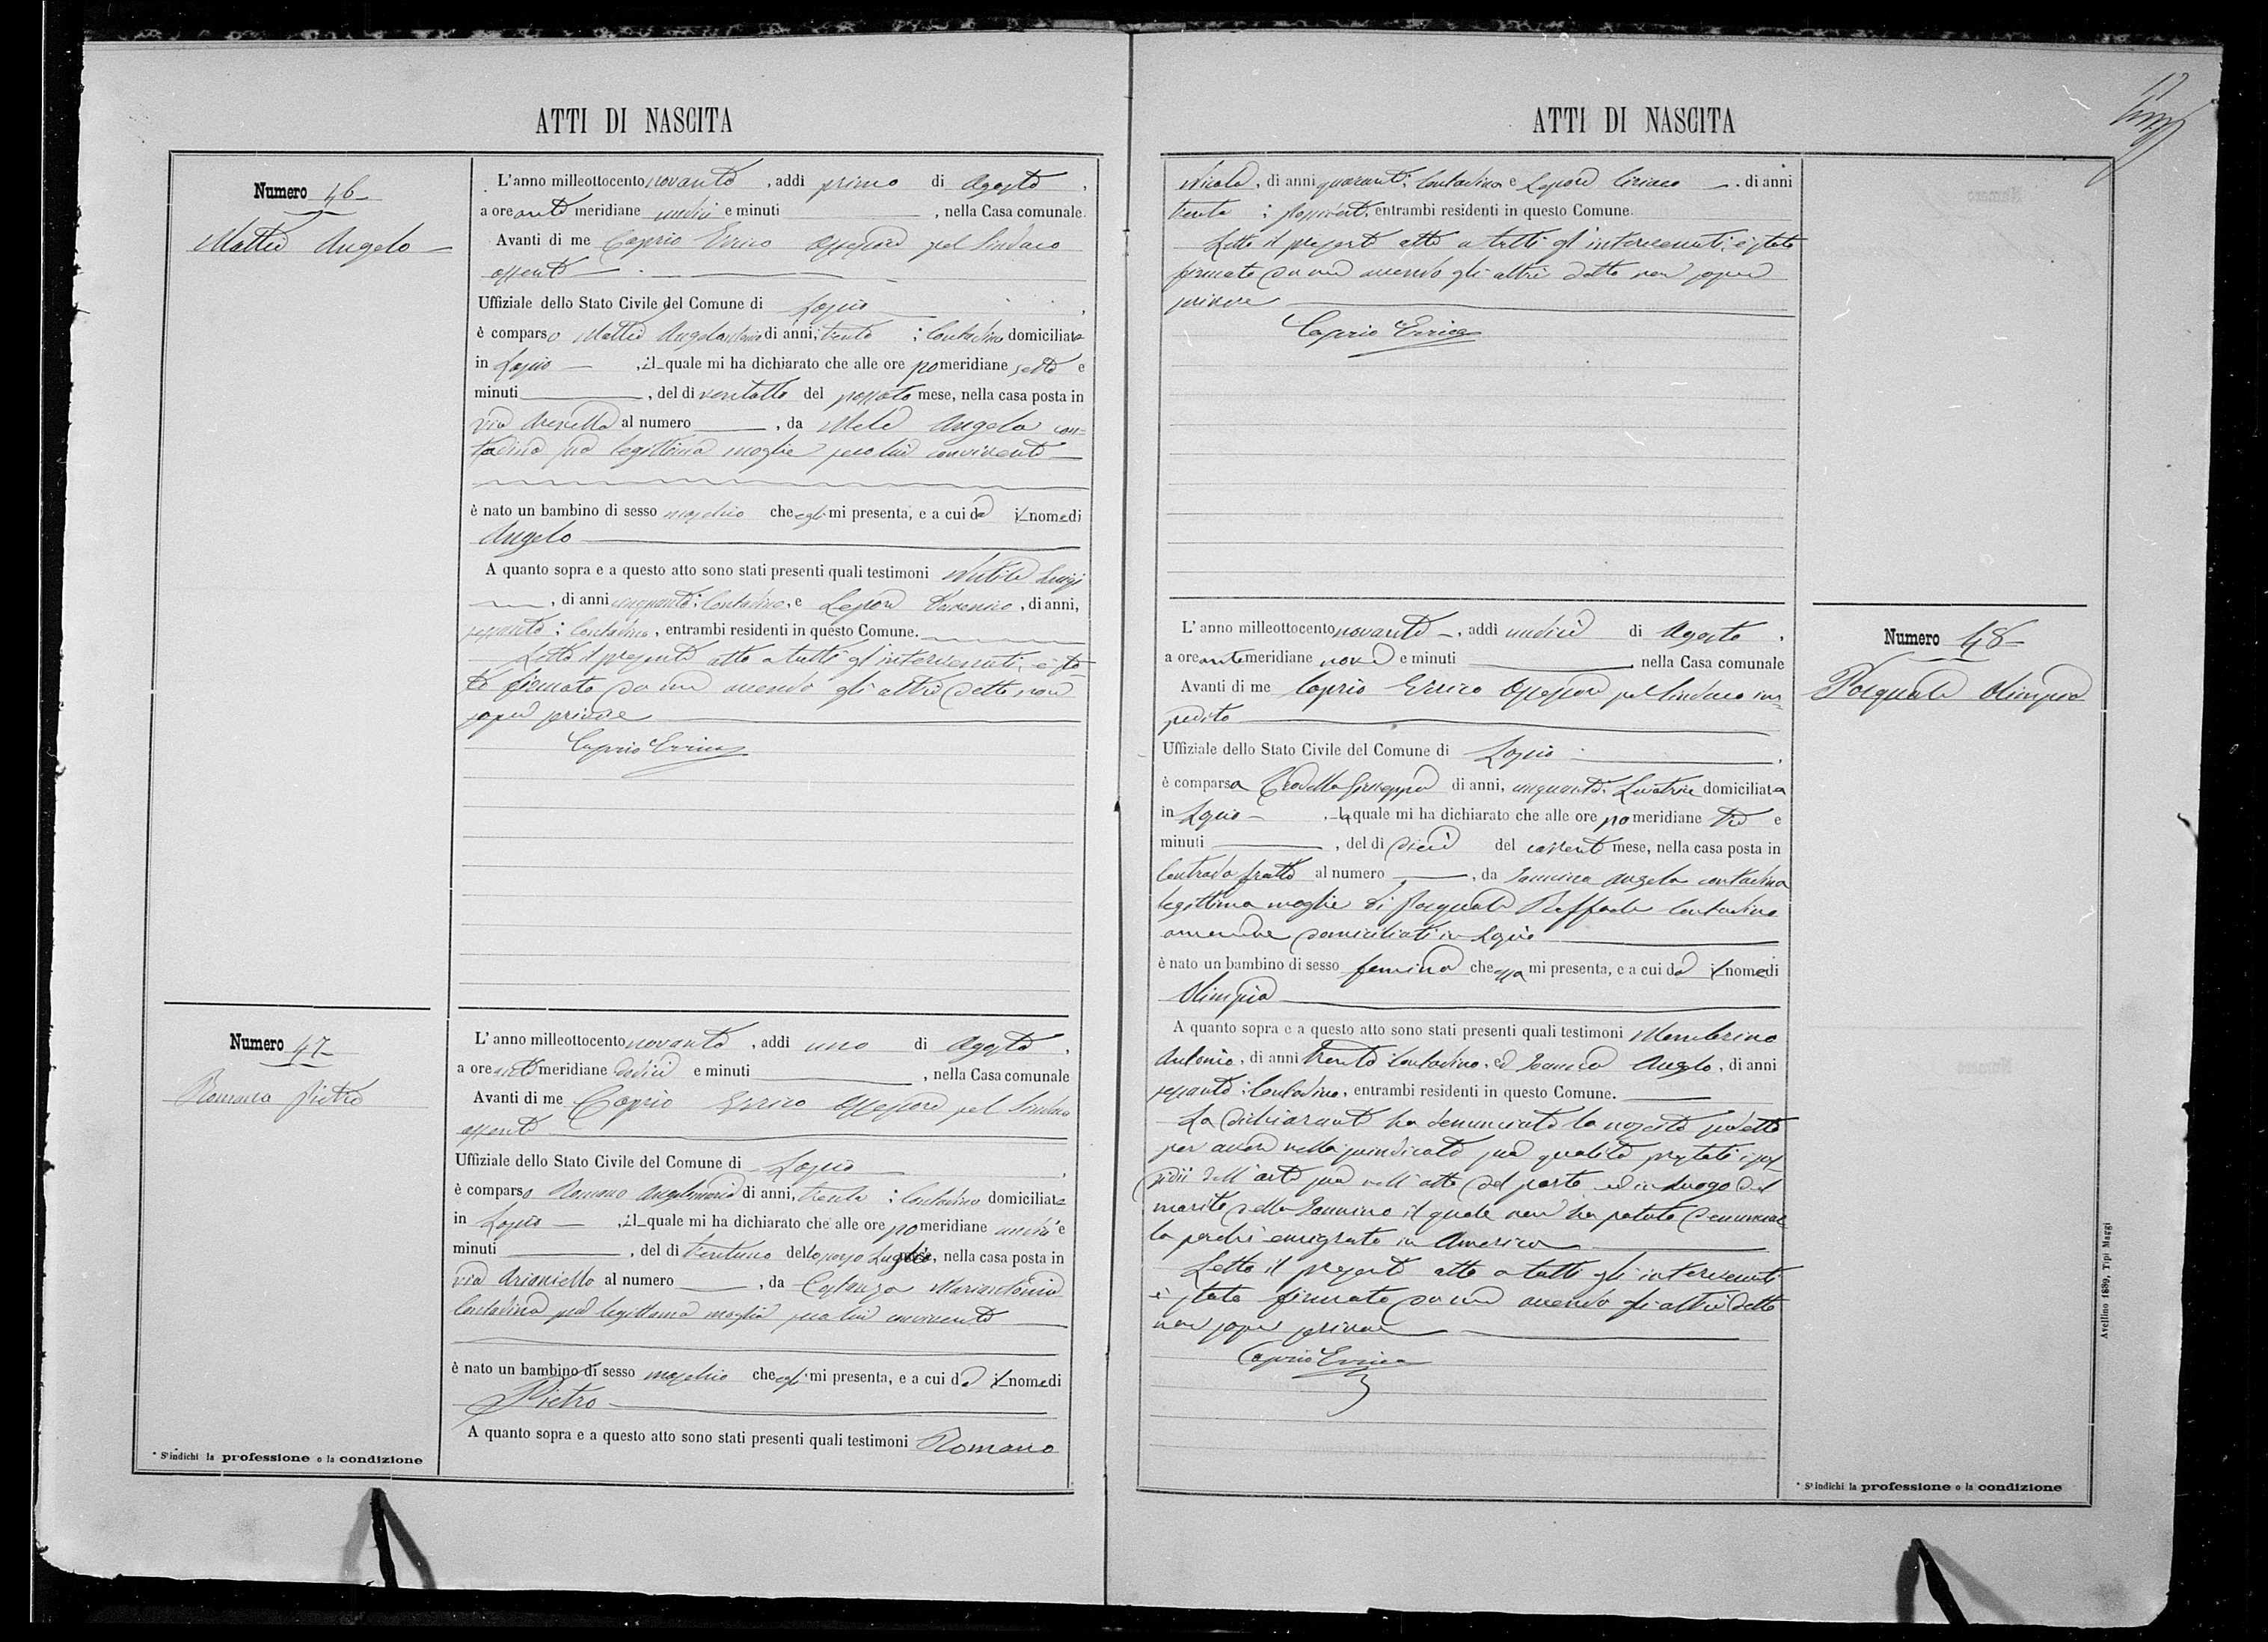 ATTI DI NASCITA
Numero 46
Mattia Angelo
L'anno milleottocento novanta, addì primo di Agosto,
a ore anti meridiane undici e minuti , nella Casa comunale.
Avanti di me Caprio Errico Assessore pel Sindaco
assente
Uffiziale dello Stato Civile del Comune di Lapio
è comparso di anni, trenta ; Contadino domiciliato
in Lapio , il quale mi ha dichiarato che alle ore pomeridiane sette e
minuti , del dì ventotto del passato mese, nella casa posta in
via al numero , da Mele Angela con=
tadina sua legittima moglie seco lui convivente
è nato un bambino di sesso maschio che egli mi presenta, e a cui dà il nome di
Angelo
A quanto sopra e a questo atto sono stati presenti quali testimoni Luigi
, di anni cinquanta; Contadino, e Lepore , di anni,
sessanta; Contadino, entrambi residenti in questo Comune.
Letto il presente atto a tutti gl'intervenuti, è sta
to firmato da me avendo gli altri detto non
saper scrivere
Caprio Errico
Numero 47
Romano Pietro
L'anno milleottocento novanta, addì uno di Agosto,
a ore anti meridiane dodici e minuti , nella Casa comunale
Avanti di me Caprio Errico Assessore pel Sindaco
assente
Uffiziale dello Stato Civile del Comune di Lapio
è comparso Romano Angelomaria di anni, trenta ; Contadino domiciliato
in Lapio , il quale mi ha dichiarato che alle ore pomeridiane undici e
minuti , del dì trentuno dello scorso Luglio, nella casa posta in
via Arianiello al numero , da Costanza Mariantonia
Contadina sua legittima moglie seco lui convivente
è nato un bambino di sesso maschio che egli mi presenta, e a cui dà il nome di
Pietro
A quanto sopra e a questo atto sono stati presenti quali testimoni Romano
* S'indichi la professione o la condizione
ATTI DI NASCITA
Nicola, di anni quaranta; Contadino e Lepore Ciriaco , di anni
trenta ; , entrambi residenti in questo Comune.
Letto il presente atto a tutti gl'intervenuti, è stato
firmato da me avendo gli altri detto non saper
scrivere
Caprio Errico
L'anno milleottocento novanta, addì undici di Agosto,
a ore antimeridiane nove e minuti , nella Casa comunale
Avanti di me Caprio Errico Assessore pel Sindaco im=
pedito
Uffiziale dello Stato Civile del Comune di Lapio
è comparsa Giuseppa di anni, cinquanta; Levatrice domiciliata
in Lapio , la quale mi ha dichiarato che alle ore pomeridiane tre e
minuti , del dì dieci del corrente mese, nella casa posta in
Contrada al numero , da Iannino Angela contadina
legittima moglie di Pasquale Raffaele Contadino
amendue domiciliati in Lapio
è nato un bambino di sesso femina che essa mi presenta, e a cui dà il nome di
Olimpia
A quanto sopra e a questo atto sono stati presenti quali testimoni Membrino
Antonio, di anni trenta Contadino, ed Angelo, di anni
sessanta; Contadino, entrambi residenti in questo Comune.
La dichiarante ha denunciato la nascita sudetta
per avere nella suindicata sua qualità prestati i sus
sidii dell'arte sua nell'atto del parto ed in luogo del
marito della Iannino il quale non ha potuto denunciar
la perchè emigrato in America
Letto il presente atto a tutti gli intervenuti
è stato firmato da me avendo gli altri detto
non saper scrivere
Caprio Errico
Numero 48
Pasquale Olimpia
* S'indichi la professione o la condizione
Avellino 1889, Tipi Maggi